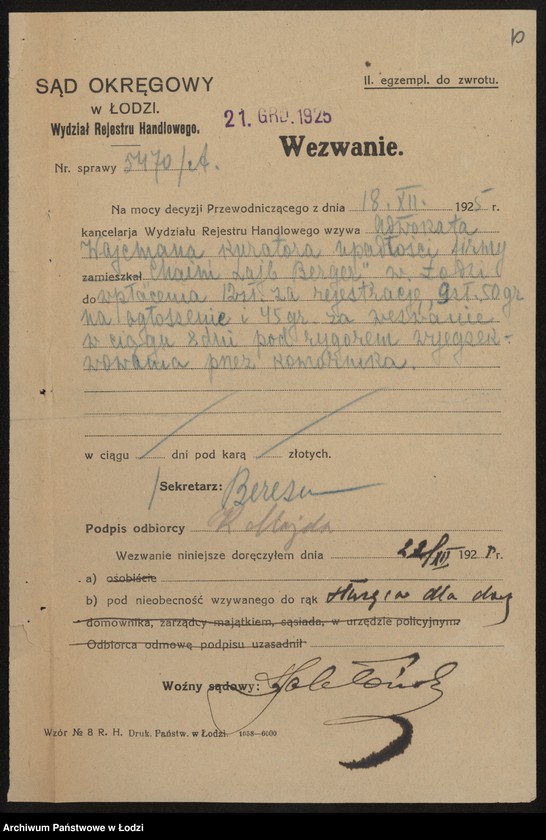 II. egzempl. do zwrotu.
SĄD OKRĘGOWY
w ŁODZI.
Wydział Rejestru Handlowego.
21. GRD. 1925
Wezwanie.
Nr. sprawy 5470/A.
Na mocy decyzji Przewodniczącego z dnia 18. XII. 1925 r.
kancelarja Wydziału Rejestru Handlowego wzywa Adwokata
Wajcmana, kuratora upadłości firmy
zamieszkał "Chaim Lajb Berger" w Łodzi
do wpłacenia 12 zł. za rejestrację, 9 zł. 50 gr
na ogłoszenie i 45 gr. za wezwanie
w ciągu 8 dni pod rygorem wyegzek-
wowania przez komornika.
w ciągu dni pod karą złotych.
Sekretarz:
Podpis odbiorcy K Majda
Wezwanie niniejsze doręczyłem dnia 22/XII 192 r.
a) osobiście
b) pod nieobecność wzywanego do rąk dla
domownika, zarządcy majątkiem, sąsiada, w urzędzie policyjnym
Odbiorca odmowę podpisu uzasadnił
Woźny sądowy:
Wzór № 8 R. H. Druk. Państw. w Łodzi. 1058—6000
Archiwum Państwowe w Łodzi